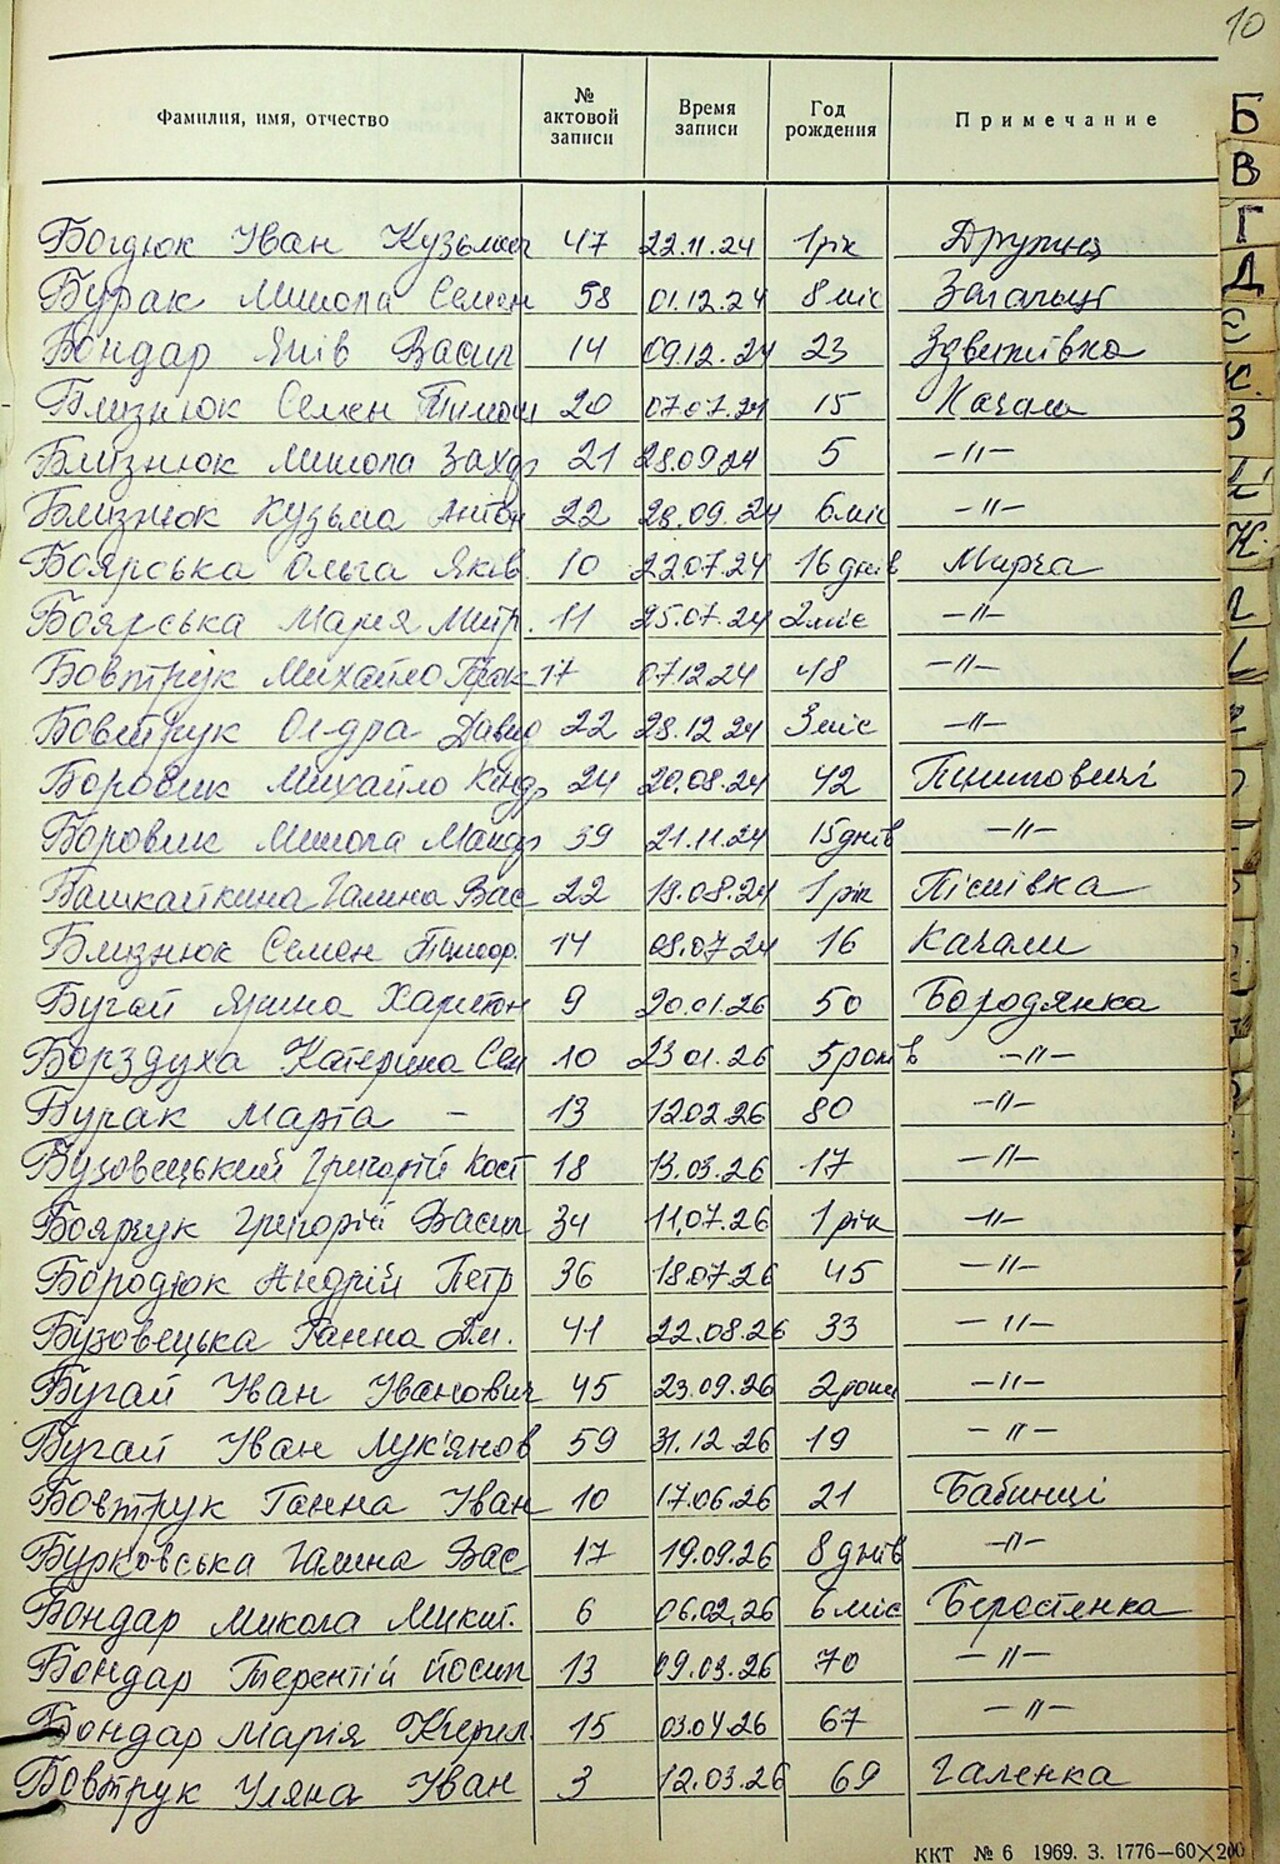 10
Фамилия, имя, отчество № актовой записи Время записи Год рождения Примечание
Богдюк Іван Кузьмич 47 22.11.24 1 рік Дружня
Бурак Микола Семен 58 01.12.24 8 міс Загальці
Бондар Яків Васил 14 09.12.24 23 Здвижівка
Близнюк Семен Тимош 20 07.07.24 15 Качали
Близнюк Микола Захар 21 28.09.24 5 -"-
Близнюк Кузьма Антон 22 28.09.24 6 міс -"-
Боярська Ольга Яків 10 22.07.24 16 днів Мирча
Боярська Марія Митр. 11 25.07.24 2 міс -"-
Бовтрук Михайло Прок 17 07.12.24 48 -"-
Бовтрук Ол-дра Давид 22 28.12.24 3 міс -"-
Боровик Михайло Кіндр 24 20.08.24 42
Боровик Микола 39 21.11.24 15 днів -"-
Башкайкина Галина Вас 22 18.08.24 1 рік Пісківка
Близнюк Семен 14 08.07.24 16 Качали
Бугай Ярина Харитон 9 20.01.26 50 Бородянка
Борздуха Катерина Сем 10 23.01.26 5 років -"-
Бурак Марта - 13 12.02.26 80 -"-
Бузовецький Григорій Кост 18 13.03.26 17 -"-
Боярчук Григорій Васил 34 11.07.26 1 рік -"-
Бородюк Андрій Петр 36 18.07.26 45 -"-
Бузовецька Ганна Дм. 41 22.08.26 33 -"-
Бугай Іван Іванович 45 23.09.26 2 роки -"-
Бугай Іван Лук'янов 59 31.12.26 19 -"-
Бовтрук Ганна Іван 10 17.06.26 21 Бабинці
Бурковська Галина Вас 17 19.09.26 8 днів -"-
Бондар Микола Микит. 6 06.02.26 6 міс Берестянка
Бондар Терентій Йосип 13 09.03.26 70 -"-
Бондар Марія Кирил. 15 03.04.26 67 -"-
Бовтрук Уляна Іван 3 12.03.26 69 Галенка
Б
В
Г
Д
Є
З
К
ККТ № 6 1969. З. 1776—60×200